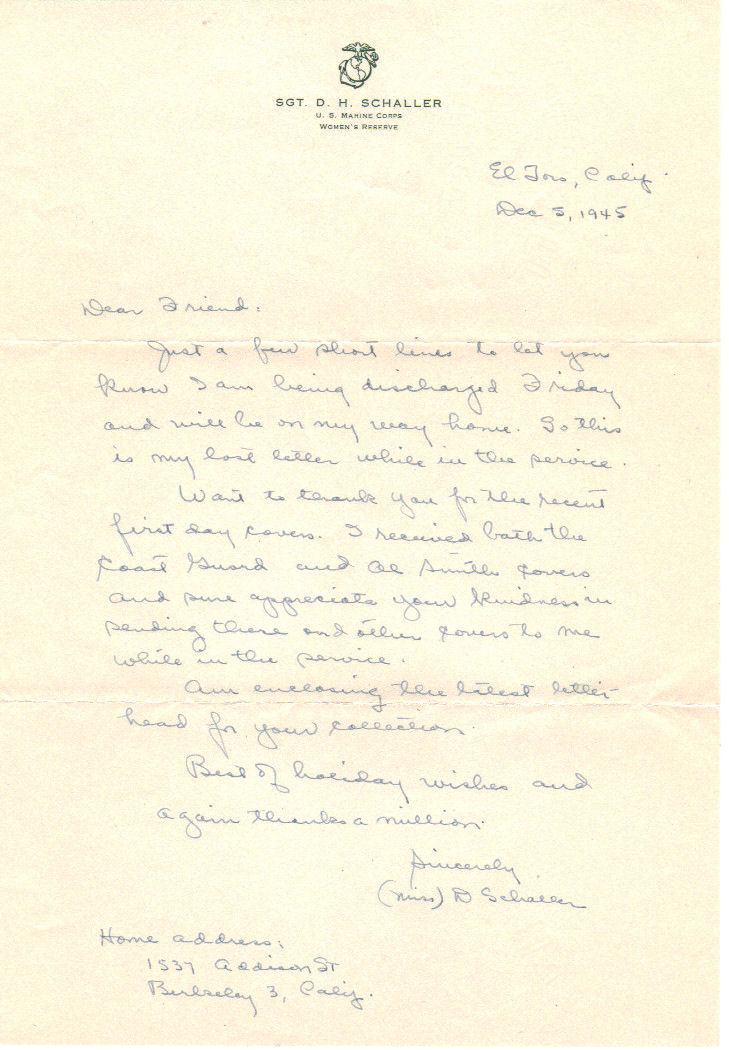 SGT. D. H. SCHALLER
U. S. MARINE CORPS
WOMEN'S RESERVE
El Toro, Calif.
Dec 5, 1945
Dear Friend:
Just a few short lines to let you
know I am being discharged Friday
and will be on my way home. So this
is my last letter while in the service.
Want to thank you for the recent
first day covers. I received both the
Coast Guard and Al Smith covers
and sure appreciate your kindness in
sending these and other covers to me
while in the service.
Am enclosing the latest letter-
head for your collection.
Best of holiday wishes and
again thanks a million.
Sincerely
(Miss) D Schaller
Home address:
1537 Addison St
Berkeley 3, Calif.